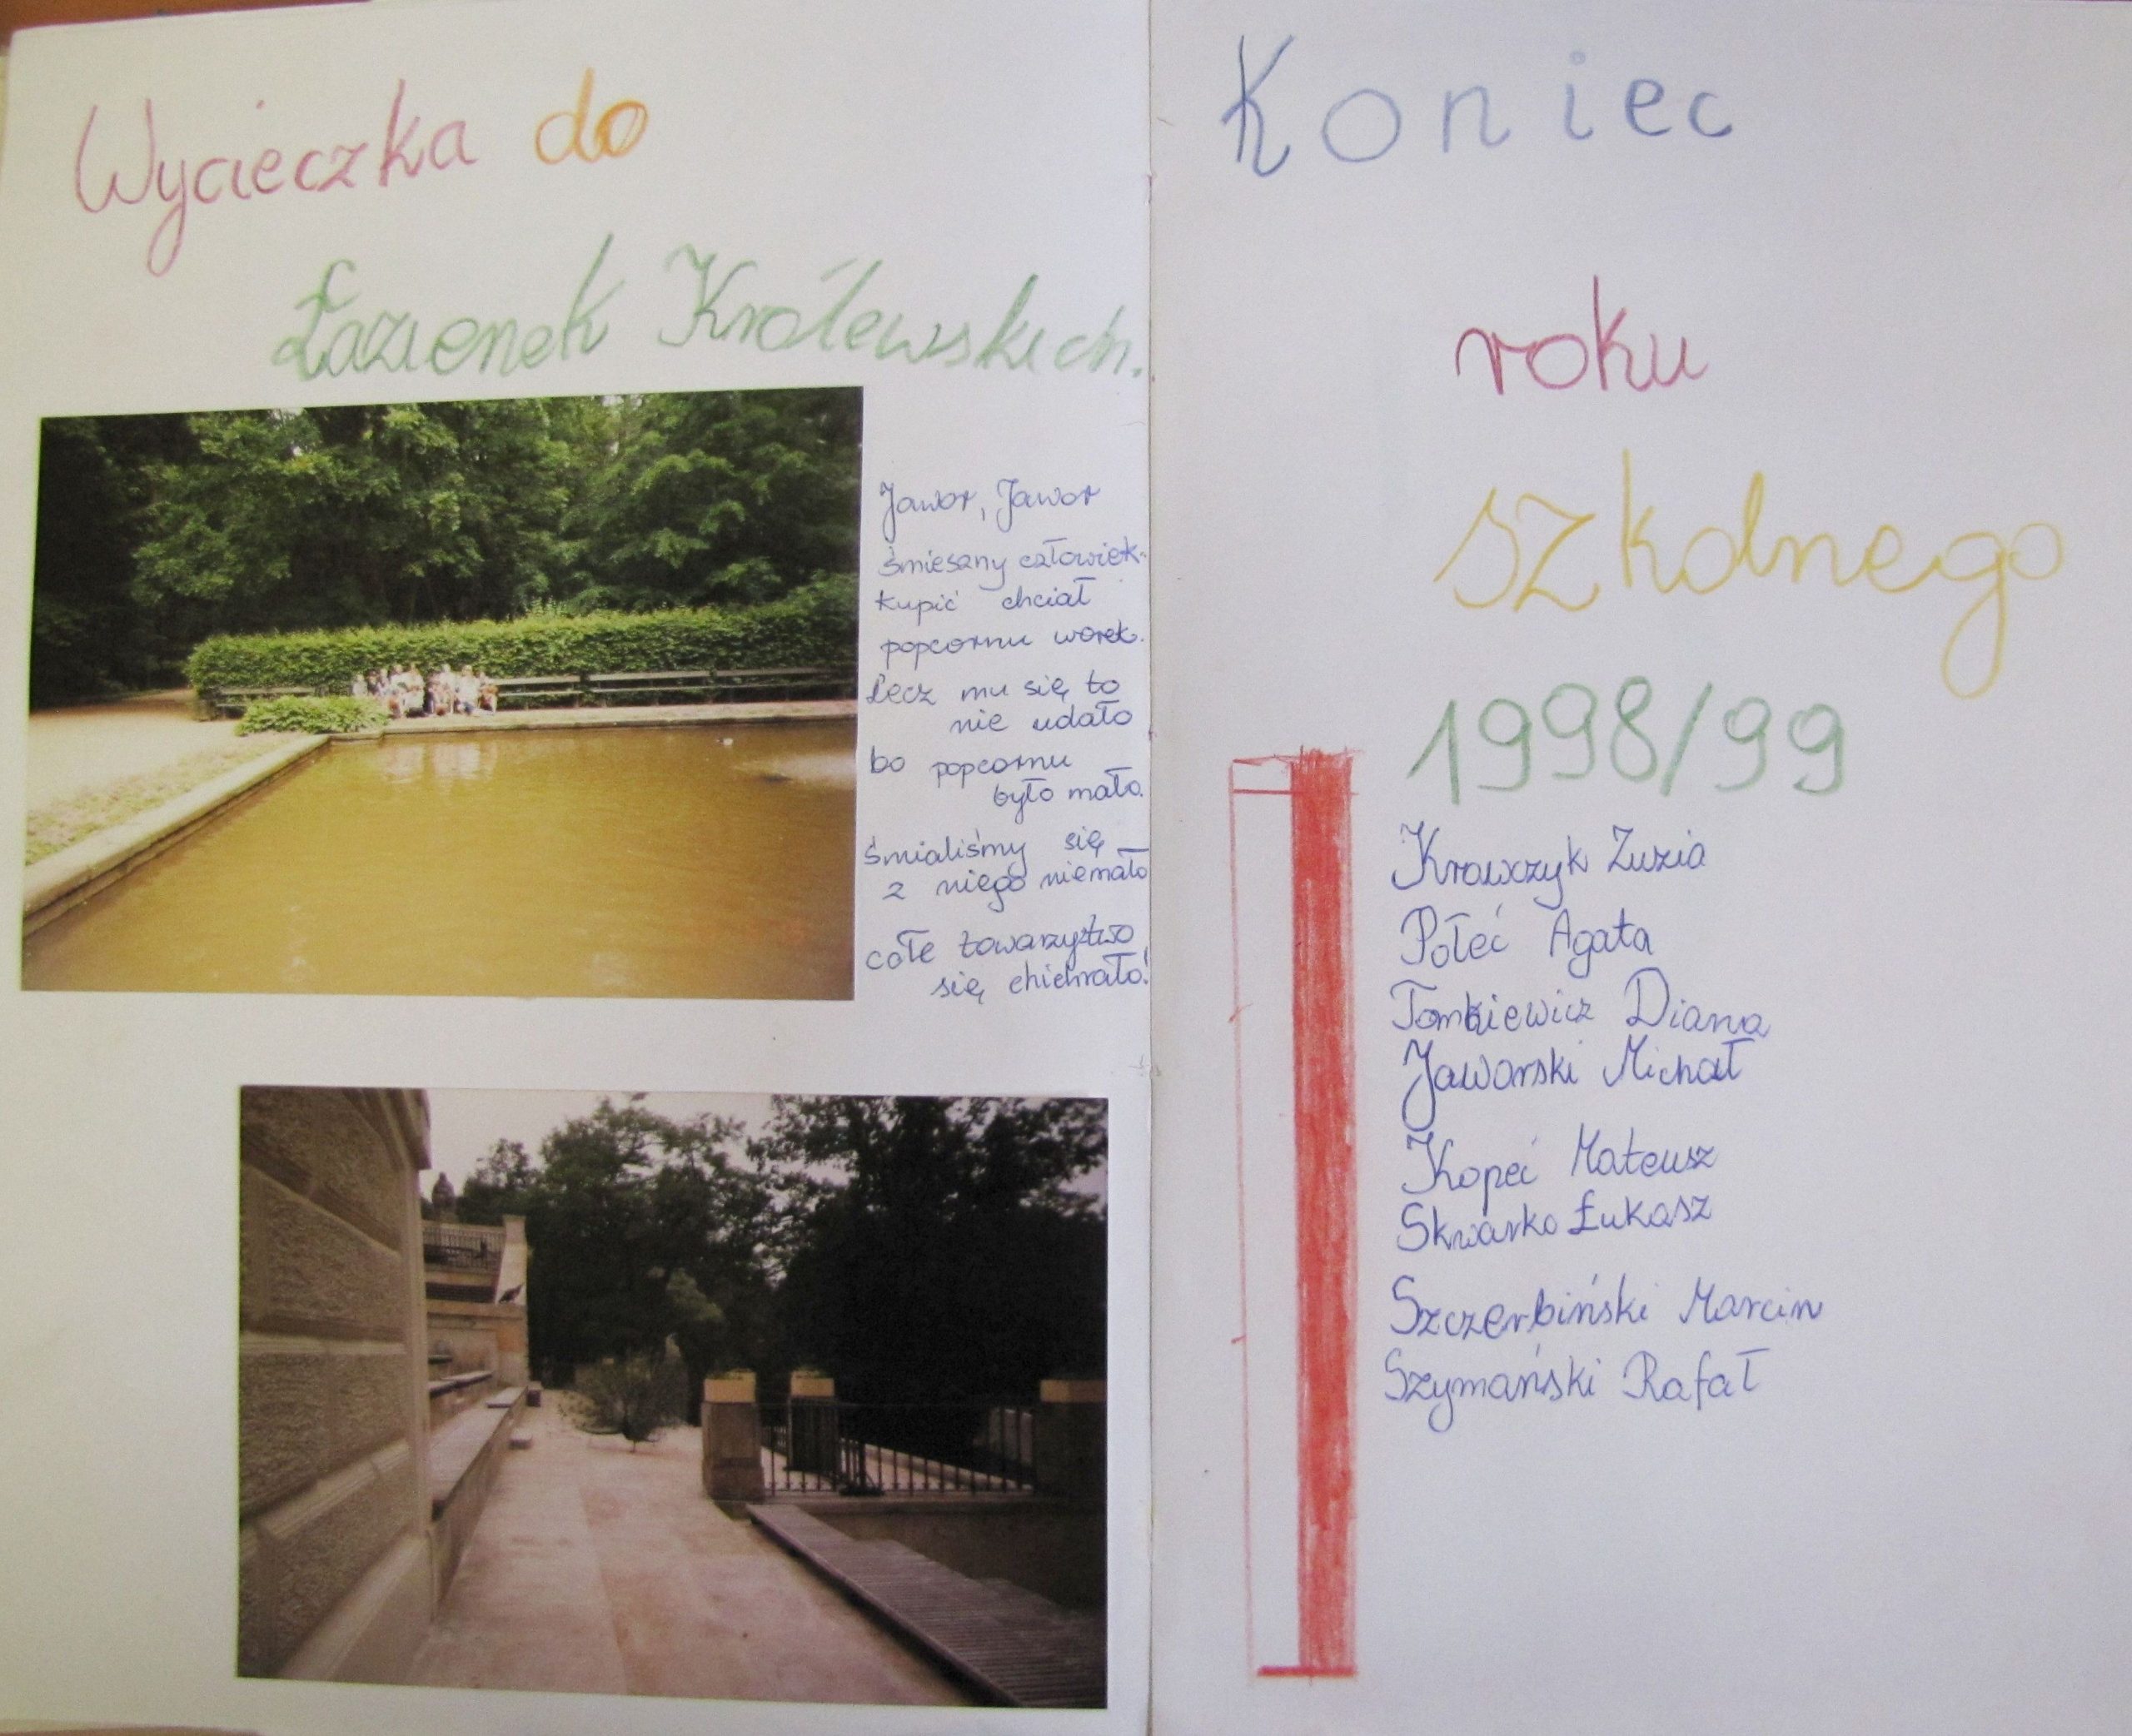 Wycieczka do
Łazienek Królewskich.
Jawor, Jawor
śmieszny człowiek
kupić chciał
popcornu worek.
Lecz mu się to
nie udało
bo popcornu
było mało.
Śmialiśmy się
z niego niemało
całe towarzystwo
się chichrało!
Koniec
roku
szkolnego
1998/99
Krawczyk Zuzia
Połeć Agata
Tomkiewicz Diana
Jaworski Michał
Kopeć Mateusz
Skwarko Łukasz
Szczerbiński Marcin
Szymański Rafał